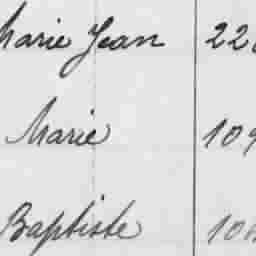 Marie Jean 22
Marie 109
Baptiste 10